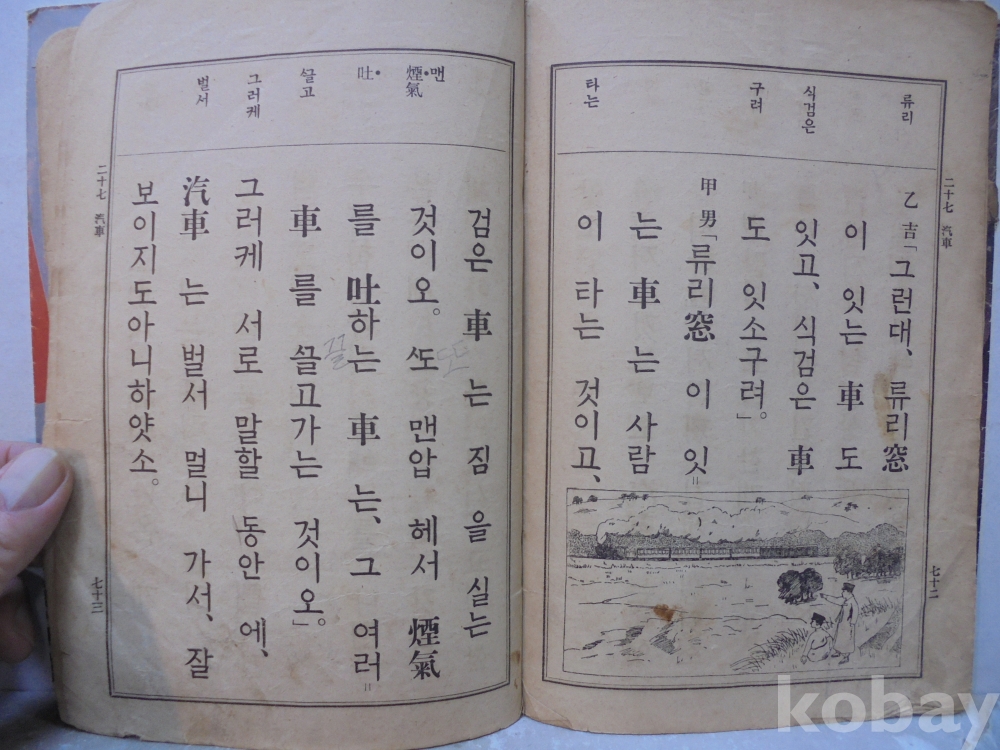 二十七 汽車
七十二
류리
식검은
구려
타는
乙吉「그런대、류리窓
이 잇는 車도
잇고、식검은 車
도 잇소구려。」
甲男「류리窓이 잇
는 車는 사람
이 타는 것이고、
맨
煙氣
吐
ᄭᅳᆯ고
그러케
벌서
검은 車는 짐을 실는
것이오。ᄯᅩ 맨압헤서 煙氣
또
를 吐하는 車는、그 여러
끌
車를 ᄭᅳᆯ고가는 것이오」。
그러케 서로 말할 동안에、
汽車는 벌서 멀니 가서、잘
보이지도아니하얏소。
二十七 汽車
七十三
kobay